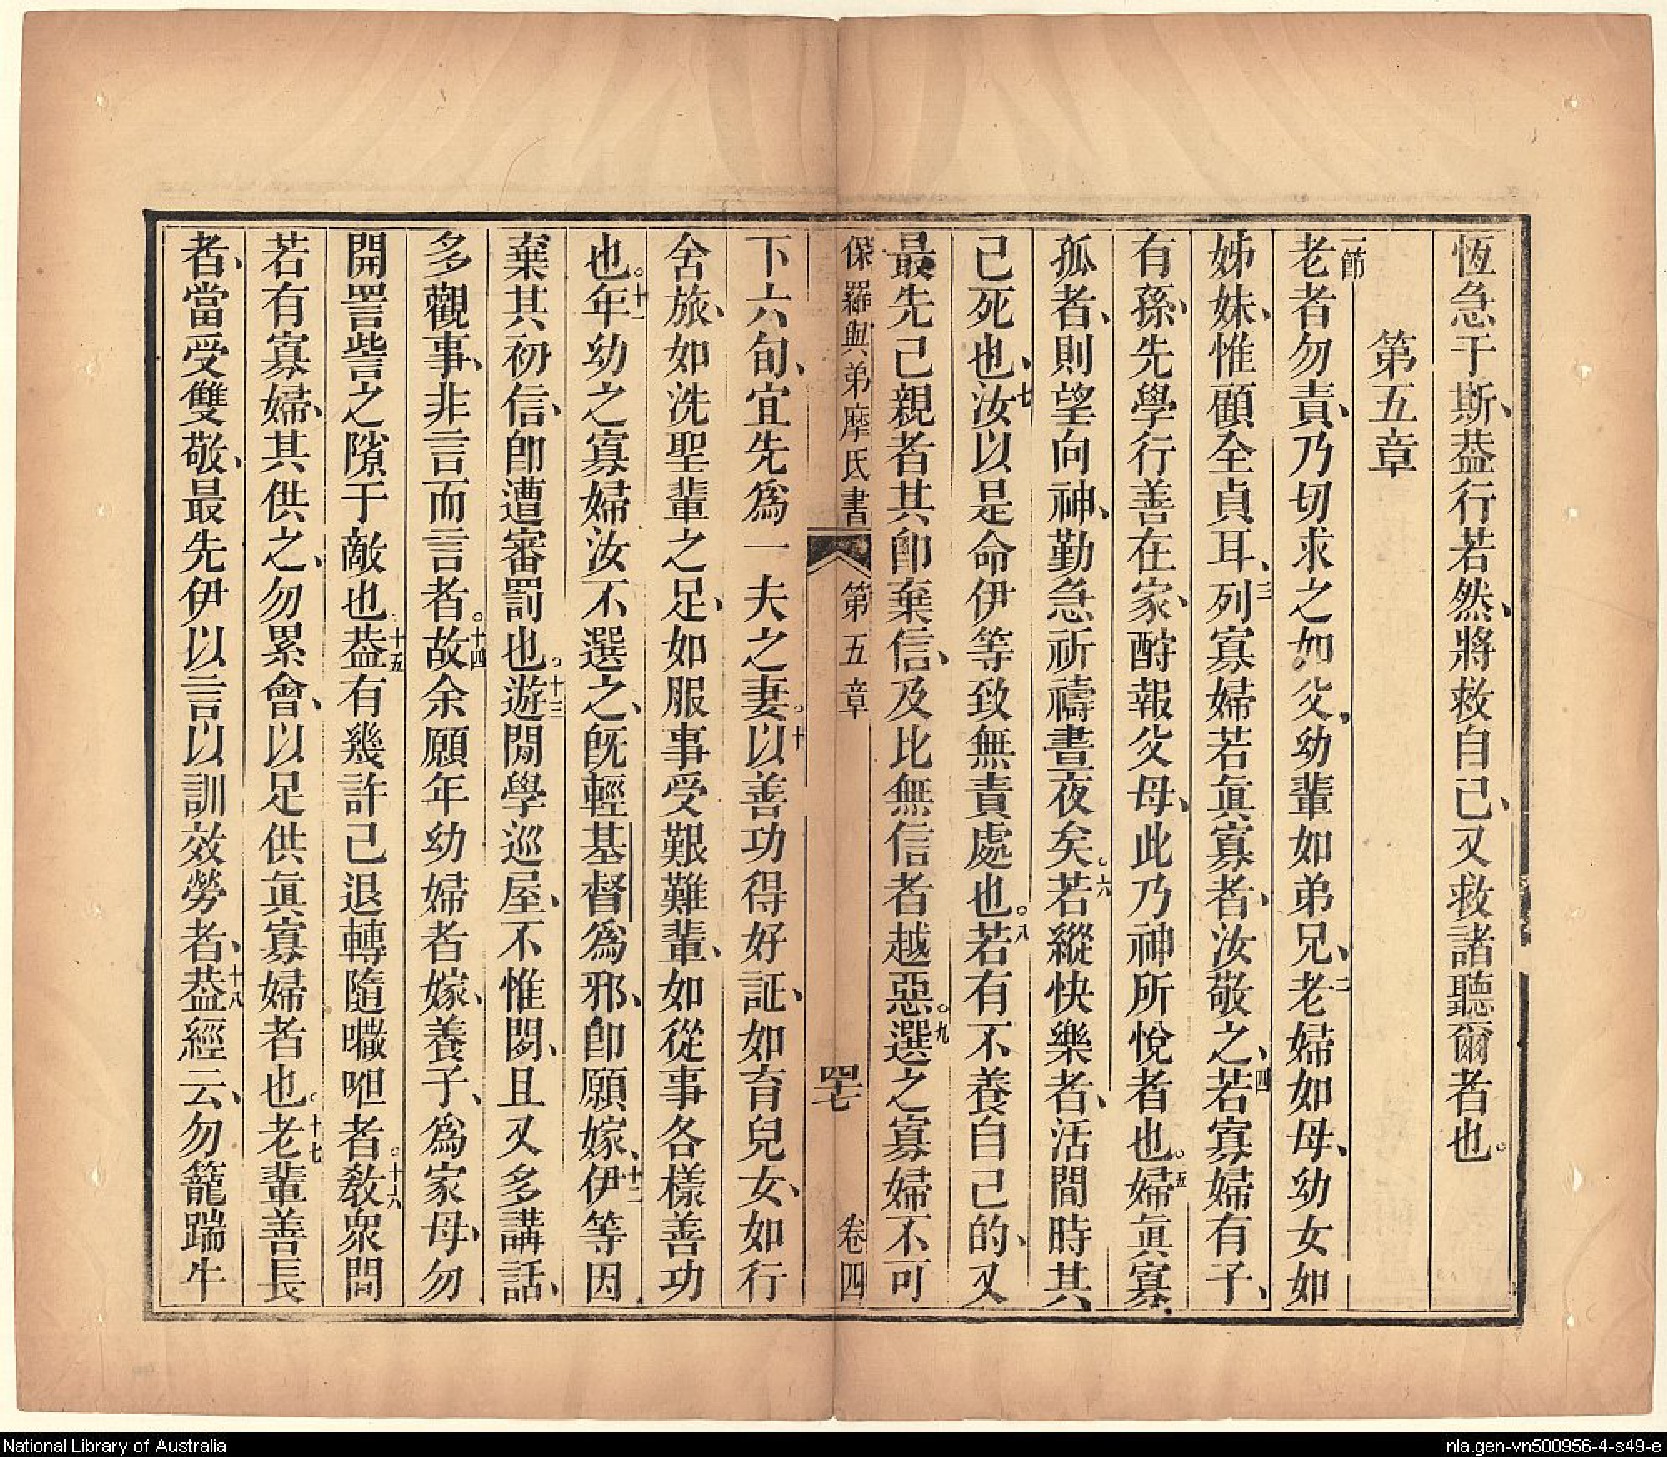 恆急于斯、葢行若然、將救自己、又救諸聽爾者也。
第五章
一節老者勿責、乃切求之如父、幼輩如弟兄、二老婦如母、幼女如
姊妹、惟顧全貞耳、三列寡婦若眞寡者、汝敬之、四若寡婦有子、
有孫、先學行善在家、酧報父母、此乃神所悅者也。五婦眞寡、
孤者、則望向神、勤急祈禱晝夜矣。六若縱快樂者、活間時其
已死也、七汝以是命伊等致無責處也。八若有不養自己的、又
最先己親者其卽棄信、及比無信者越惡。九選之寡婦不可
保羅與弟摩氏書 第五章 四七 卷四
下六旬、宜先爲一夫之妻。十以善功得好証、如育兒女、如行
舍旅、如洗聖輩之足、如服事受艱難輩、如從事各樣善功
也。十一年幼之寡婦汝不選之、旣輕基督爲邪、卽願嫁、十二伊等因
棄其初信、卽遭審罰也。十三遊閒學巡屋、不惟閒、且又多講話、
多觀事、非言而言者。十四故余願年幼婦者嫁、養子、爲家母、勿
開詈訾之隙于敵也。十五葢有幾許已退轉隨囐呾者。十六敎衆間
若有寡婦、其供之、勿累會、以足供眞寡婦者也。十七老輩善長
者、當受雙敬、最先伊以言以訓效勞者、十八葢經云、勿籠踹牛
National Library of Australia
nla.gen-vn500956-4-s49-e